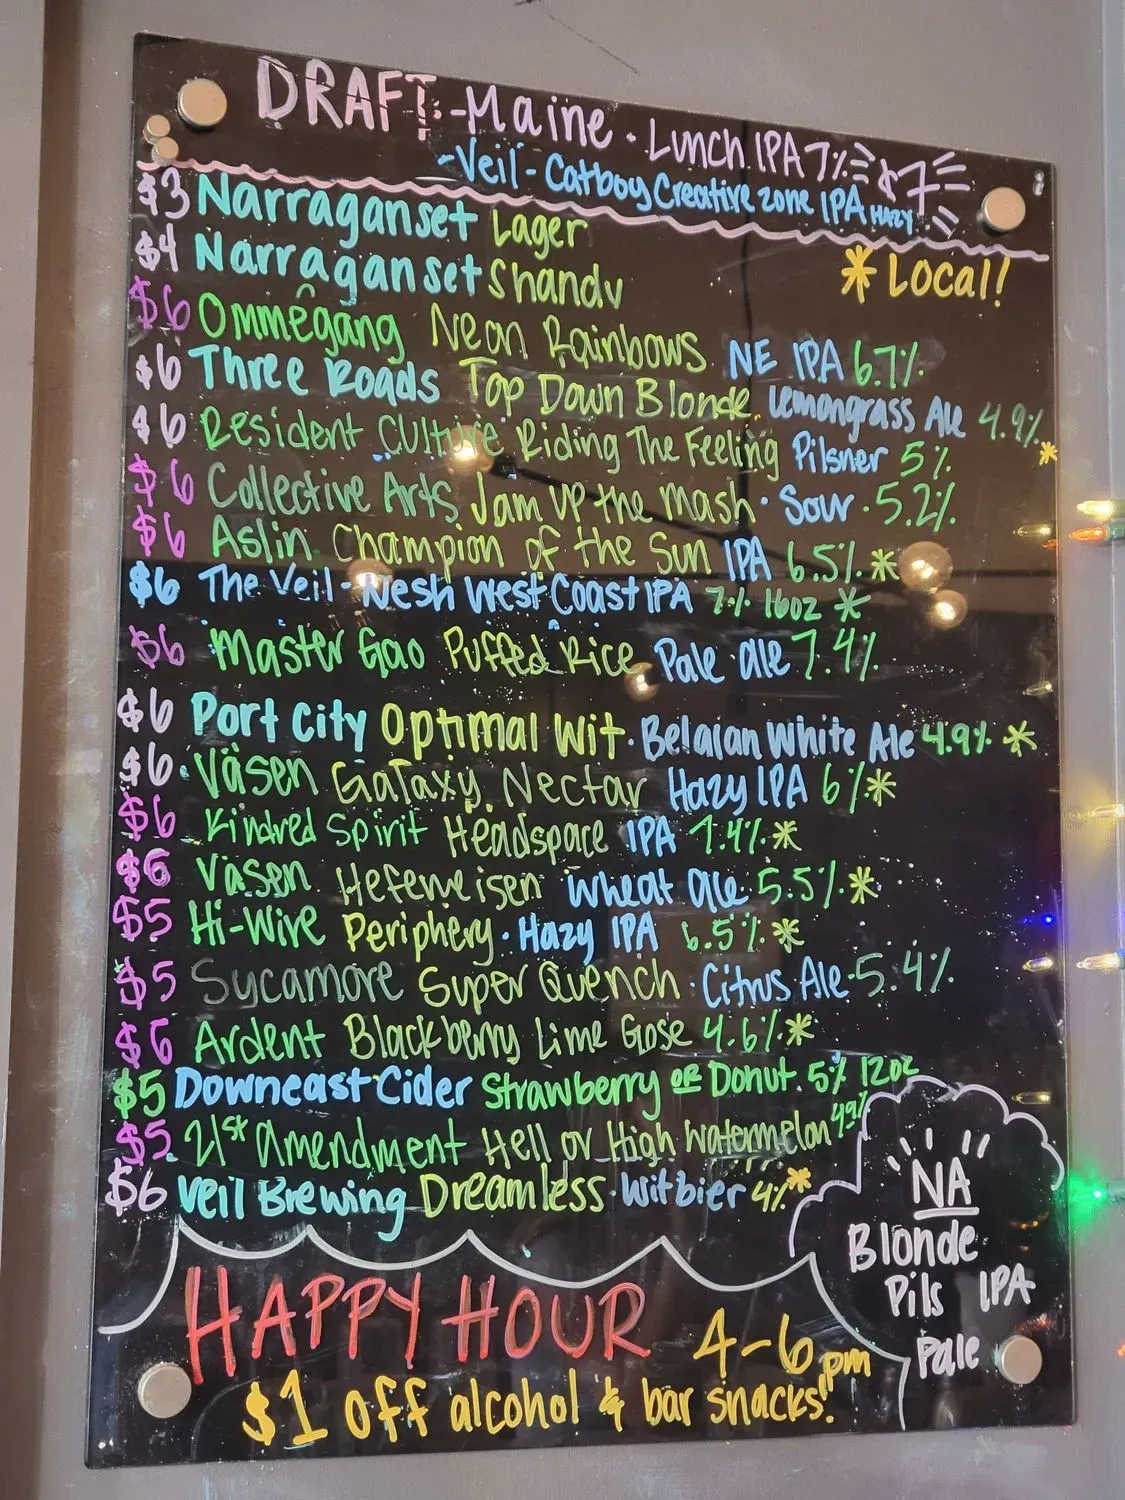 DRAFT - Maine · Lunch IPA 7% $7
- Veil - Catboy Creative zone IPA HAZY
$3 Narraganset Lager
* Local!
$4 Narraganset Shandy
$6 Ommegang Neon Rainbows NE IPA 6.7%
$6 Three Roads Top Down Blonde Lemongrass Ale 4.9% *
$6 Resident Culture Riding The Feeling Pilsner 5%
$6 Collective Arts Jam up the mash · Sour · 5.2%
$6 Aslin Champion of the Sun IPA 6.5% *
$6 The Veil - Nesh West Coast IPA 7% 16oz *
$6 Master Gao Puffed Rice Pale ale 7.4%
$6 Port City Optimal Wit · Belgian White Ale 4.9% *
$6 · Väsen Galaxy Nectar Hazy IPA 6% *
$6 Kindred Spirit Headspace IPA 7.4% *
$6 Väsen Hefeweisen Wheat ale 5.5% *
$5 Hi-Wire Periphery · Hazy IPA 6.5% *
$5 Sycamore Super Quench · Citrus Ale · 5.4%
$6 Ardent Blackberry Lime Gose 4.6% *
$5 Downeast Cider Strawberry OR Donut. 5% 12oz
$5 21st Amendment Hell or High Watermelon 4.9%
$6 Veil Brewing Dreamless · Witbier 4% *
NA
Blonde
Pils IPA
Pale
HAPPY HOUR 4-6pm
$1 off alcohol & bar snacks!